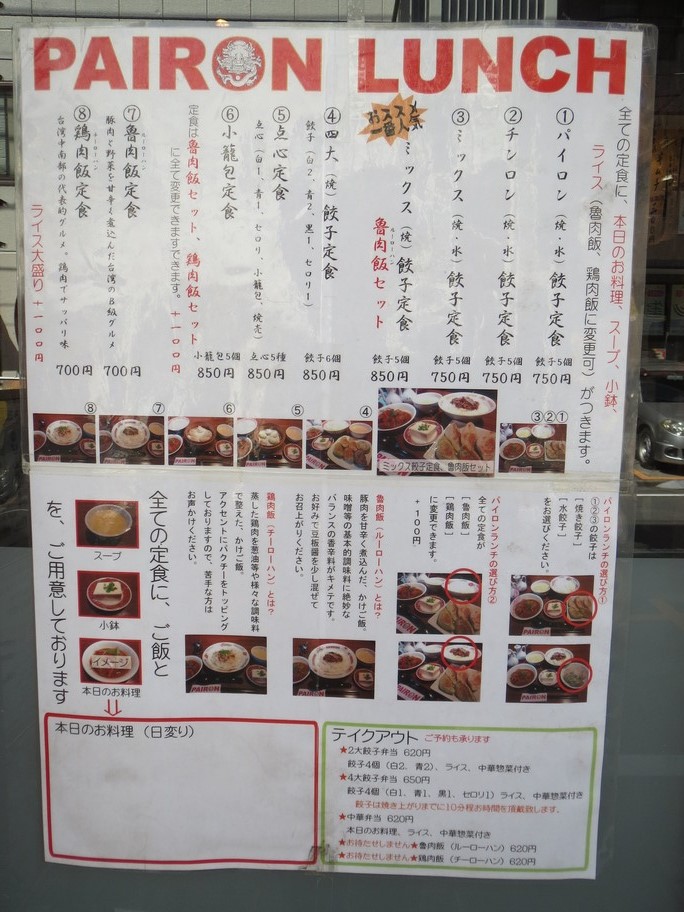 PAIRON LUNCH
全ての定食に、本日のお料理、スープ、小鉢、
ライス（魯肉飯、鶏肉飯に変更可）がつきます。
① パイロン（焼・水）餃子定食 餃子5個 750円
② チンロン（焼・水）餃子定食 餃子5個 750円
③ ミックス（焼・水）餃子定食 餃子5個 750円
人気
一番
おススメ
ミックス（焼）餃子定食 餃子5個
魯肉飯セット 850円
ルーローハン
④ 四大（焼）餃子定食 餃子6個
餃子（白2、青2、黒1、セロリ1） 850円
⑤ 点心定食 点心5種
点心（白1、青1、セロリ、小龍包、焼売） 850円
⑥ 小龍包定食 小龍包5個
850円
定食は魯肉飯セット、鶏肉飯セット
に全て変更できますできます。＋一〇〇円
⑦ 魯肉飯定食
ルーローハン
豚肉と野菜を甘辛く煮込んだ台湾のB級グルメ 700円
⑧ 鶏肉飯定食
チーローハン
台湾中南部の代表的グルメ。鶏肉でサッパリ味 700円
ライス大盛り＋一〇〇円
⑧
⑦
⑥
⑤
④
ミックス餃子定食、魯肉飯セット
③②①
パイロンランチの選び方①
①②③の餃子は
［焼き餃子］
［水餃子］
をお選びください。
パイロンランチの選び方②
全ての定食が
［魯肉飯］
［鶏肉飯］
に変更できます。
＋100円
魯肉飯（ルーローハン）とは？
豚肉を甘辛く煮込んだ、かけご飯。
味噌等の基本的調味料に絶妙な
バランスの香辛料がキメテです。
お好みで豆板醤を少し混ぜて
お召上がりください。
鶏肉飯（チーローハン）とは？
蒸した鶏肉を葱油等や様々な調味料
で整えた、かけご飯。
アクセントにパクチーをトッピング
しておりますので、苦手な方は
お声かけください。
全ての定食に、ご飯と
スープ
小鉢
イメージ
本日のお料理
を、ご用意しております
PAIRON
PAIRON
PAIRON
PAIRON
PAIRON
PAIRON
本日のお料理（日変り）
テイクアウト ご予約も承ります
★2大餃子弁当 620円
餃子4個（白2、青2）、ライス、中華惣菜付き
★4大餃子弁当 650円
餃子4個（白1、青1、黒1、セロリ1）ライス、中華惣菜付き
餃子は焼き上がりまでに10分程お時間を頂戴致します。
★中華弁当 620円
本日のお料理、ライス、中華惣菜付き
★お待たせしません★魯肉飯（ルーローハン）620円
★お待たせしません★鶏肉飯（チーローハン）620円